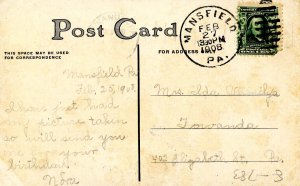 Post Card
THIS SPACE MAY BE USED
FOR CORRESPONDENCE
FOR ADDRESS
MANSFIELD
FEB
27
1908
PA.
Mansfield Pa
Feb. 25, 1908.
I have just had
my picture taken
so will send you
one for your
birthday.
Nora
Mrs. Ida
Towanda
403 Elizabeth St. Pa.
E82-3